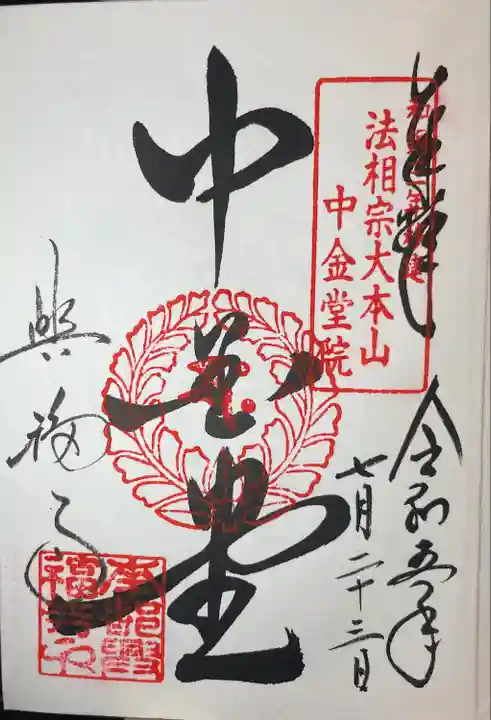 奉拝
和銅三年創建
法相宗大本山
中金堂院
令和五年
七月二十三日
中金堂
興福寺